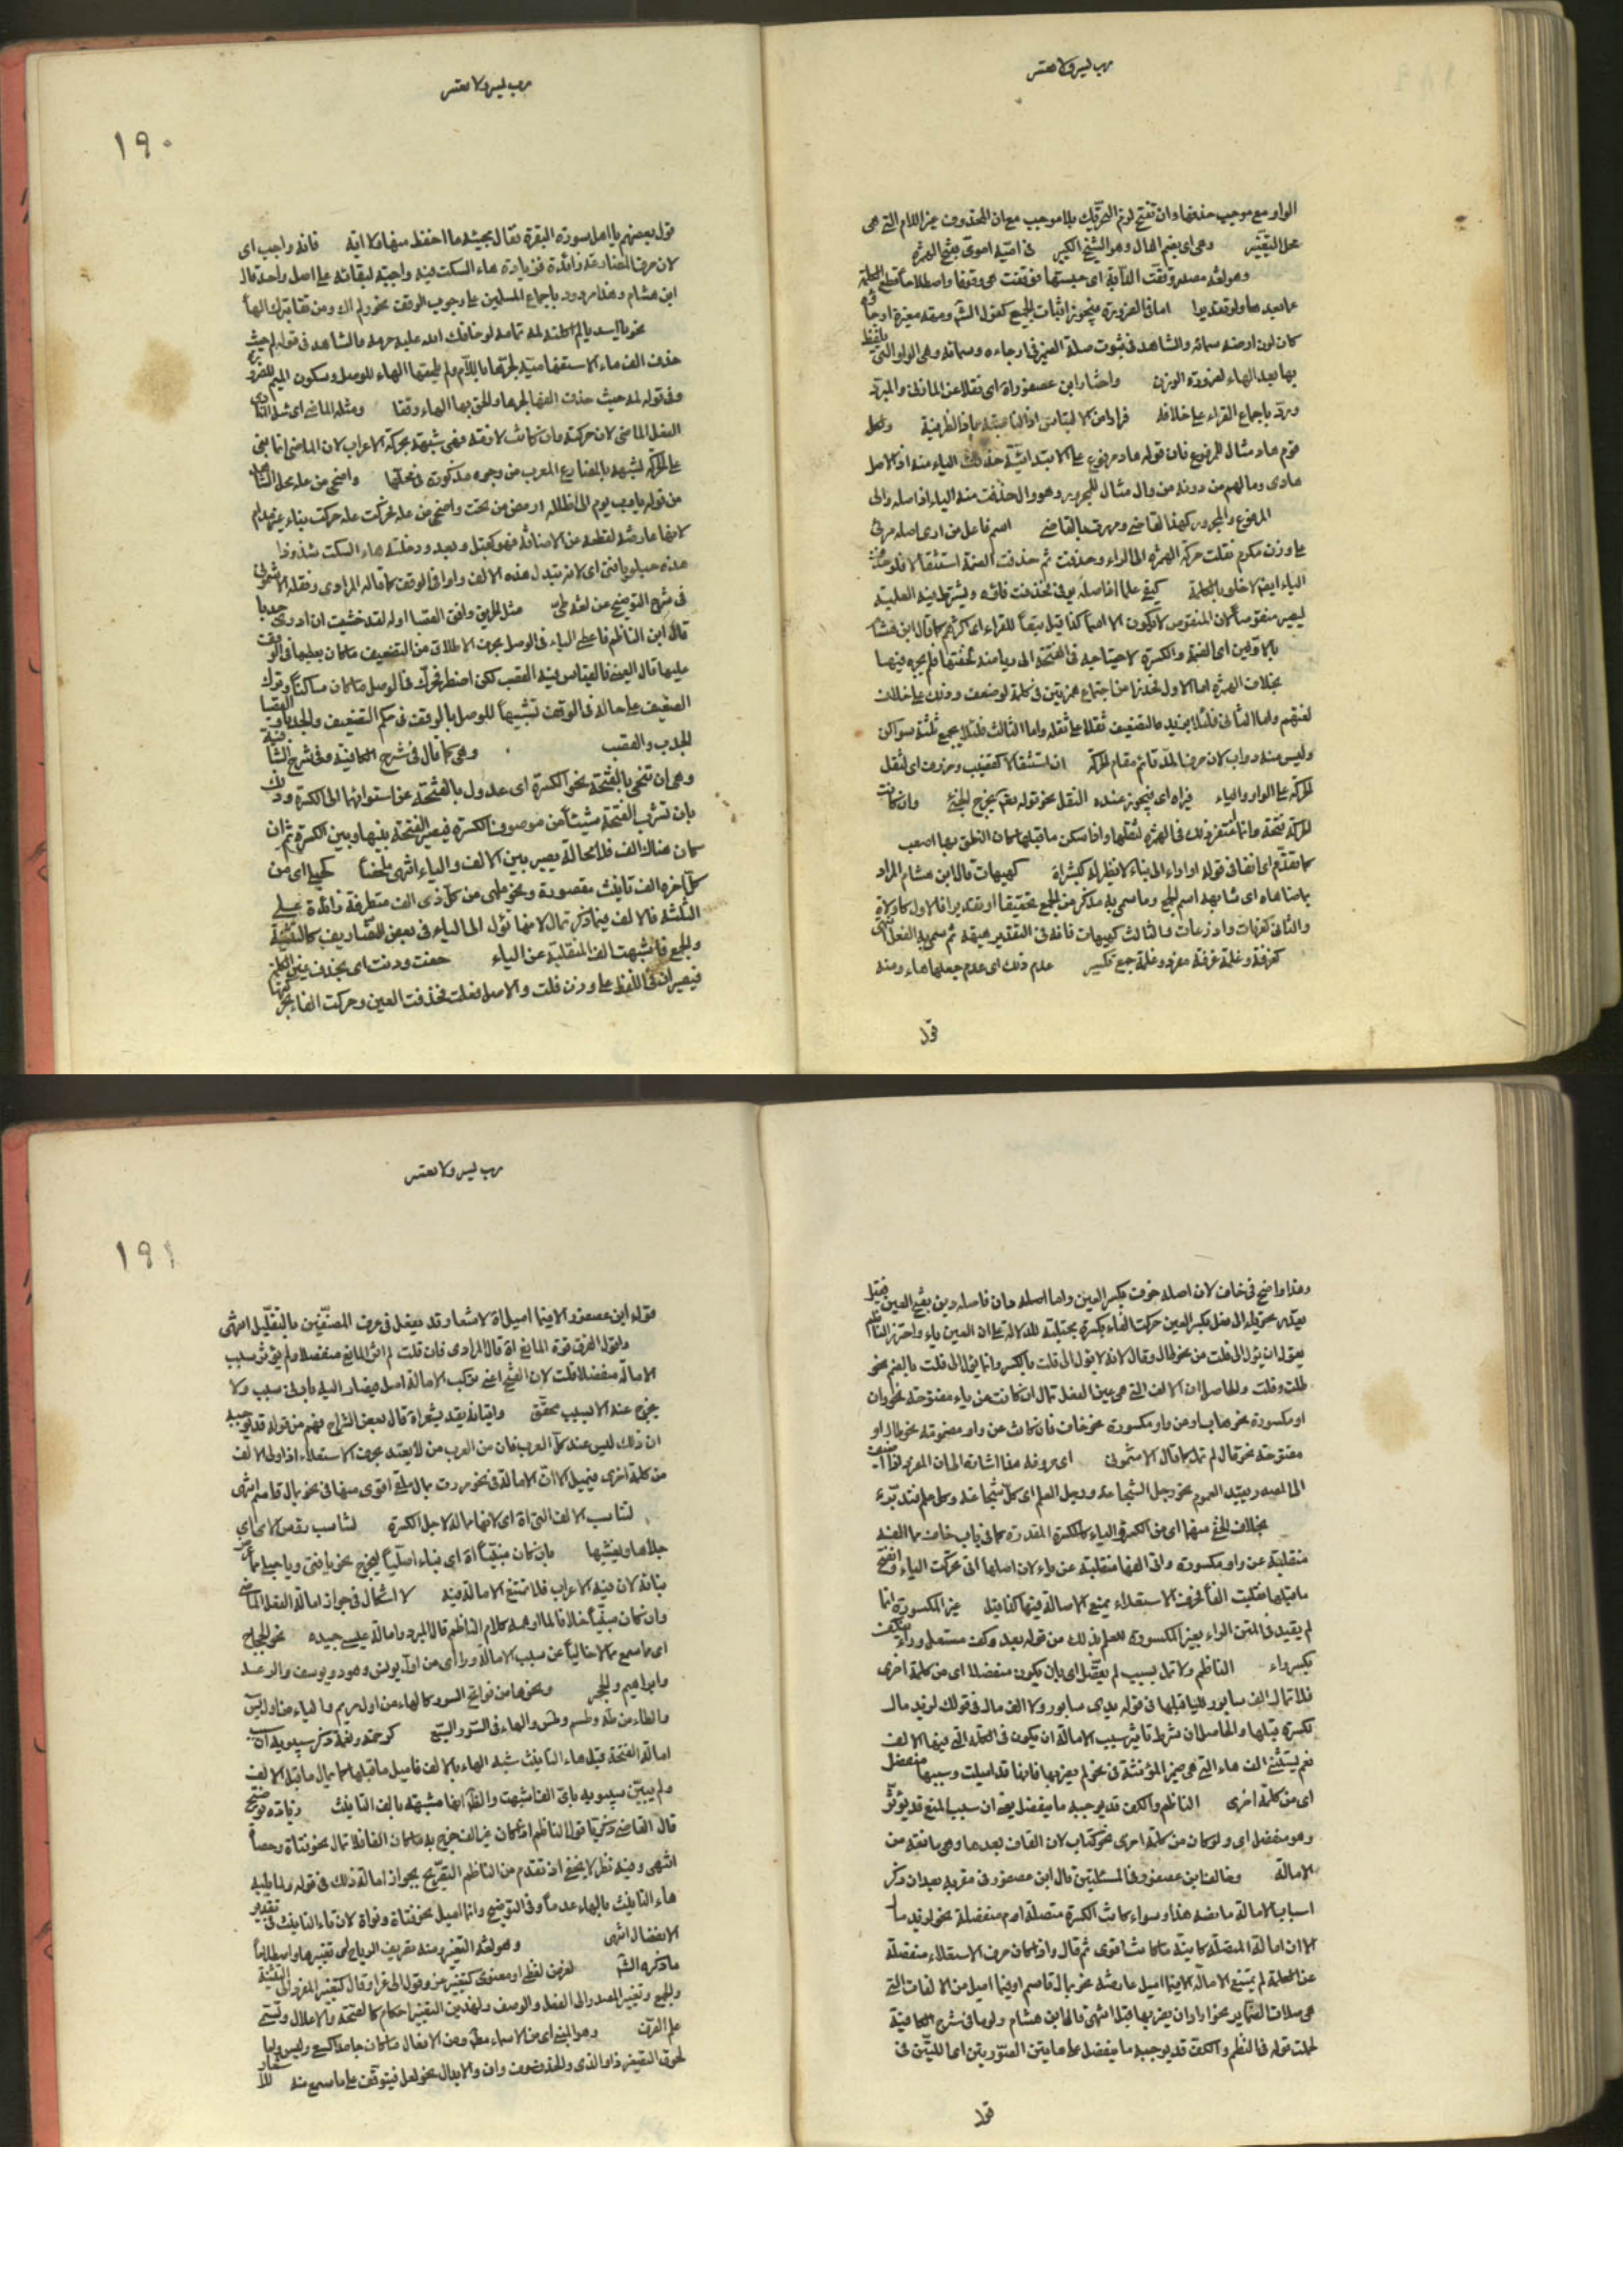 رب يسر ولا تعسر
الواو مع موجب حذفها وان تفتح لزم التحريك بلا موجب مع ان المحذوف عين اللام التي هي
محل التغيير وهي اي بضم الهاء وهو الشيخ الكبير في امية اموي بفتح الهمزة
وهو لغة مصدر وقفت الدابة اي حبستها فوقفت هي وقوفا واصطلاحا قطع الكلمة
عما بعدها ولو تقديرا اما في الضرورة فيجوز اثبات الجميع كقول الش ومهمه مغبرة ارجاؤه
كان لون ارضه سماؤه والشاهد في ثبوت صلة الضمير في ارجاءه وسماؤه وهي الواو التي يلفظ
بها بعد الهاء لضرورة الوزن واختار ابن عصفور اه اي نقلا عن المازني والمبرد
ورد باجماع القراء على خلافه فرارا من الالتباس اذا الناصبة باذا الظرفية ولكل
قوم هاد مثال للمرفوع فان قوله هاد مرفوع على الابتدائية حذفت الياء منه اذ الاصل
هادي وما لهم من دونه من وال مثال للمجرور وهو وال حذفت منه الياء اذ اصله والي
المرفوع والمجرور كهذا القاضي ومررت بالقاضي اسم فاعل من ارى اصله مرئي
على وزن مكرم نقلت حركة الهمزة الى الراء وحذفت ثم حذفت الضمة استثقالا فلو حذفت
الياء ايضا لاخلوا بالكلمة كيفي علما اذ اصله يوفي فحذفت فاؤه ويشترط فيه العلمية
ليصير منقوصا لان المنقوص لا يكون الا اسما كذا قيل تبعا للقراء اي اكثرهم كما قال ابن هشام
بالاولين اي الضمة والكسرة لاحتياجه في الفتحة الى رياضة لخفتها فلم يجوزه فيها
بخلاف الهمزة اما الاول فحذرا من اجتماع همزتين في كلمة لو ضعف وذلك على خلاف
لغتهم واما الثاني فلئلا يزيد بالتضعيف ثقلا على ثقله واما الثالث فلئلا يجمع ثلثة سواكن
وليس منه دواب لان حرف المد قائم مقام الحركة ان استثقالا كقضيب وخروف اي لثقل
الحركة على الواو والياء فيراه اي فيجوز عنده النقل نحو قوله يخرج الخبئ وان كانت
الحركة فتحة وانما اغتفر ذلك في الهمزة لثقلها واذا سكن ما قبلها كان النطق بها اصعب
كما تقدم اي انفا في قوله او اداه الى بناء لا نظير له كبشراة كهيهات قال ابن هشام المراد
بما ضاهاه اي شابهه اسم الجمع وما سمي به مذكر من الجمع تحقيقا او تقديرا فالاول كاولات
والثاني كعرفات واذرعات والثالث كهيهات فانه في التقدير جمع هيهة ثم سمي به الفعل انتهى
كغرفة وغلمة غرفة مفرد وغلمة جمع تكسير عدم ذلك اي عدم جعلها هاء ومنه
قول
رب يسر ولا تعسر
١٩٠
قول بعضهم يا اهل سورة البقرة فقال مجيبه ما احفظ منها ولا ايه فانه واجب اي
لان حرف المضارعة زائدة فزيادة هاء السكت فيه واجبة لبقائه على اصل واحد قال
ابن هشام وهذا مردود باجماع المسلمين على وجوب الوقف نحو ولم اك ومن تق بترك الهاء
نحو يا اسديا لم اكلته لمه تمامه لو خافك الله عليه حرمه والشاهد في قوله لم حيث
حذف الف ما الاستفهامية لجرها باللام ولم يلحقها الهاء للوصل وسكون الميم للضرورة
وفي قوله لمه حيث حذف الفها لجرها والحق بها الهاء وقفا ومثله الماضي اي مثل
الفعل الماضي لان حركته وان كانت لازمة فهي شبيهة بحركة الاعراب لان الماضي انما بني
على الحركة لشبهه بالمضارع المعرب من وجوه مذكورة في محلها واضحى من عله محل الشاهد
من قوله يا رب يوم لي لا اظلله ارمض من تحت واضحى من عله فحركت عله حركت بناء غير مدام
لانها عارضة لقطعه عن الاضافة فهو كقبل وبعد ودخلته هاء السكت شذوذا
هذه حبلو يا فتى اي لانه تبدل هذه الالف واوا في الوقف كما قاله المرادي ونقله الاشموني
في شرح التوضيح عن لغة طي مثل الحريق وافق القصبا اوله لقد خشيت ان ارى جدبا
قال ابن الناظم فاعطى الياء في الوصل بحرف الاطلاق من التضعيف ما كان يعطيها في الوقف
عليها قال العيني فالقياس فيه القصب لكن اضطر فحرك في الوصل ما كان ساكنا وترك
التضعيف على حاله في الوقف تشبيها للوصل بالوقف في حكم التضعيف والجدبا والقصبا
الجدب والقصب وهي كما قال في شرح الكافية وفي شرح الشافية
وهي ان تنحي بالفتحة نحو الكسرة اي عدول بالفتحة عن استوائها الى الكسرة وذلك
بان تشرب الفتحة شيئا من صوت الكسرة فيصير الفتحة بينها وبين الكسرة ثم ان
كان هناك الف فلا محالة يصير بين الالف والياء انتهى ملخصا كحبلى اي من
كل اخرها الف تانيث مقصورة ونحو ملهى من كل ذي الف متطرفة زائدة على
الثلثة فالالف فيما ذكر تمال لانها تؤل الى الياء في بعض التصاريف كالتثنية
والجمع فاشبهت الف المنقلبة عن الياء خفت ودنت اي بحذف عين الكلمة
فيصيران في اللفظ على وزن فلت والاصل فعلت فحذفت العين وحركت الفاء بحركتها
وهذا واضح في خاف لان اصله خوف بكسر العين واما اصله دان فاصله دين بفتح العين فقيل
بقدر تحويله الى فعل بكسر العين حركت الفاء بكسرة مجتلبة للدلالة على ان العين ياء واحترز الناظم
بقوله ان يؤل الى فلت من نحو طال وقال لانه لا يؤل الى فلت بالكسر وانما يؤل الى فلت بالضم نحو
طلت وقلت والحاصل ان الالف التي هي عين الفعل تمال ان كانت عن ياء مفتوحة نحو دان
او مكسورة نحو هاب او عن واو مكسورة نحو خاف فان كانت عن واو مضمومة نحو طال او
مفتوحة نحو قال لم تمل كما قال الاشموني اي معروفه هذا اشارة الى ان المعرف اذا اضيف
الى المصدر يفيد العموم نحو رجل الشجاعة ورجل العلم اي كل شجاعة وكل علم فتدبر
بخلاف الخفي منهما اي من الكسرة والياء كالكسرة المقدرة كما في باب خاف مما الفه
منقلبة عن واو مكسورة والف منقلبة عن ياء لان اصلها تحركت الياء وانفتح
ما قبلها فقلبت الفا فحرف الاستعلاء يمنع الامالة فيها كذا قيل غير المكسورة انما
لم يقيد في المتن الراء بغير المكسورة للعلم بذلك من قوله بعد وكف مستعل وراء ينكف
بكسر راء الناظم ولا تمل لسبب لم يتصل اي بان يكون منفصلا اي من كلمة اخرى
فلا تمال الف سابور للياء قبلها في قوله يدي سابور ولا الف مال في قولك لزيد مال
لكسرة قبلها والحاصل ان شرط تاثير سبب الامالة ان يكون في الكلمة التي فيها الالف
نعم يستثنى الف هاء التي هي ضمير المؤنثة في نحو لم يضربها فانها قد اميلت وسببها منفصل
اي من كلمة اخرى الناظم والكف قد يوجبه ما ينفصل يعني ان سبب المنع قد يؤثر
وهو منفصل اي ولو كان من كلمة اخرى نحو كتاب لان القاف بعدها وهي مانعة من
الامالة وخالف ابن عصفور في المسئلتين قال ابن عصفور في مقربه بعد ان ذكر
اسباب الامالة ما نصه هذا وسواء كانت الكسرة متصلة ام منفصلة نحو لزيد مال
الا ان امالة المتصلة كائنة ما كانت اقوى ثم قال واذا كان حرف الاستعلاء منفصلا
عن الكلمة لم يمنع الامالة الا فيما اميل عارضة نحو بمال قاسم او فيما اميل من الالفات التي
هي صلات الضماير نحو اراد ان يضربها قبل انتهى قال ابن هشام ولولا ما في شرح الكافية
لحملت قوله في النظم والكف قد يوجبه ما ينفصل على هاتين الصورتين اي اللتين في
قول
رب يسر ولا تعسر
١٩١
قوله ابن عصفور الا فيما اميل اه لاشعار قد يفعل في عرف المصنفين بالتقليل انتهى
ولقول الفرق قوة المانع اه قال المرادي فان قلت لم اثر المانع منفصلا ولم يؤثر سبب
الامالة منفصلا قلت لان الفتح اعني ترك الامالة اصل فيصار اليه بادنى سبب ولا
يخرج عنه الا لسبب محقق واتيانه بقد يشعر اه قال بعض الشراح فهم من قوله قد يوجبه
ان ذلك ليس عند كل العرب فان من العرب من لا يعتد بحرف الاستعلاء اذا ولى الالف
من كلمة اخرى فيميل الا ان الامالة في نحو مررت بمال ملق اقوى منها في نحو بمال قاسم انتهى
لتناسب الالف التي اه اي لانها ممالة لاجل الكسرة لتناسب رؤس الاي اي
جلاها ويغشيها بان كان مبنيا اه اي بناء اصليا ليخرج نحو يا فتى ويا حبلى مما
بناؤه لان فيه الاعراب فلا تمتنع الامالة فيه لا اشكال في جواز امالة الفعل الماضي
وان كان مبنيا خلافا لما اوهمه كلام الناظم قال المبرد وامالة عسى جيده نحو الحجاج
اي ما سمع مما لا خاليا عن سبب الامالة وراى من اول يونس وهود ويوسف والرعد
وابراهيم والحجر ونحوها من فواتح السور كالهاء من اول مريم والياء منه اول يس
والطاء من طه وطسم وطس والهاء في السور السبع كرحمة ونعمة ذكر سيبويه ان سبب
امالة الفتحة قبل هاء التانيث شبه الهاء بالالف فاميل ما قبلها كما يمال ما قبل الالف
ولم يبين سيبويه باي الف شبهت والظ انها شبهة بالف التانيث
قال القاضي زكريا قول الناظم اذا كان غير الف خرج به ما كان الفا فلا تمال نحو فتاة وحصاة
انتهى وفيه نظر لا يخفى اذ تقدم من الناظم التصريح بجواز امالة ذلك في قوله ولما يليه
هاء التانيث ما الهاء عدما وفي التوضيح وانما اميل نحو فتاة ونواة لان تاء التانيث في تقدير
الانفصال انتهى وهو لغة التغيير ومنه تصريف الرياح اي تغييرها واصطلاحا
ما ذكره الش لغرض لفظي او معنوي كتغيير غزو وقول الى غزا وقال كتغيير المفرد الى التثنية
والجمع وتغيير المصدر الى الفعل والوصف ولهذين التغييرين احكام كالصحة والاعلال وتسمى
علم التصريف وهو المبني اي من الاسماء مطلقا ومن الافعال ما كان جامدا كعسى وليس
لحوق التصغير ذا والذي والحذف سوف وان والابدال نحو لعل فيتوقف على ما سمع منه